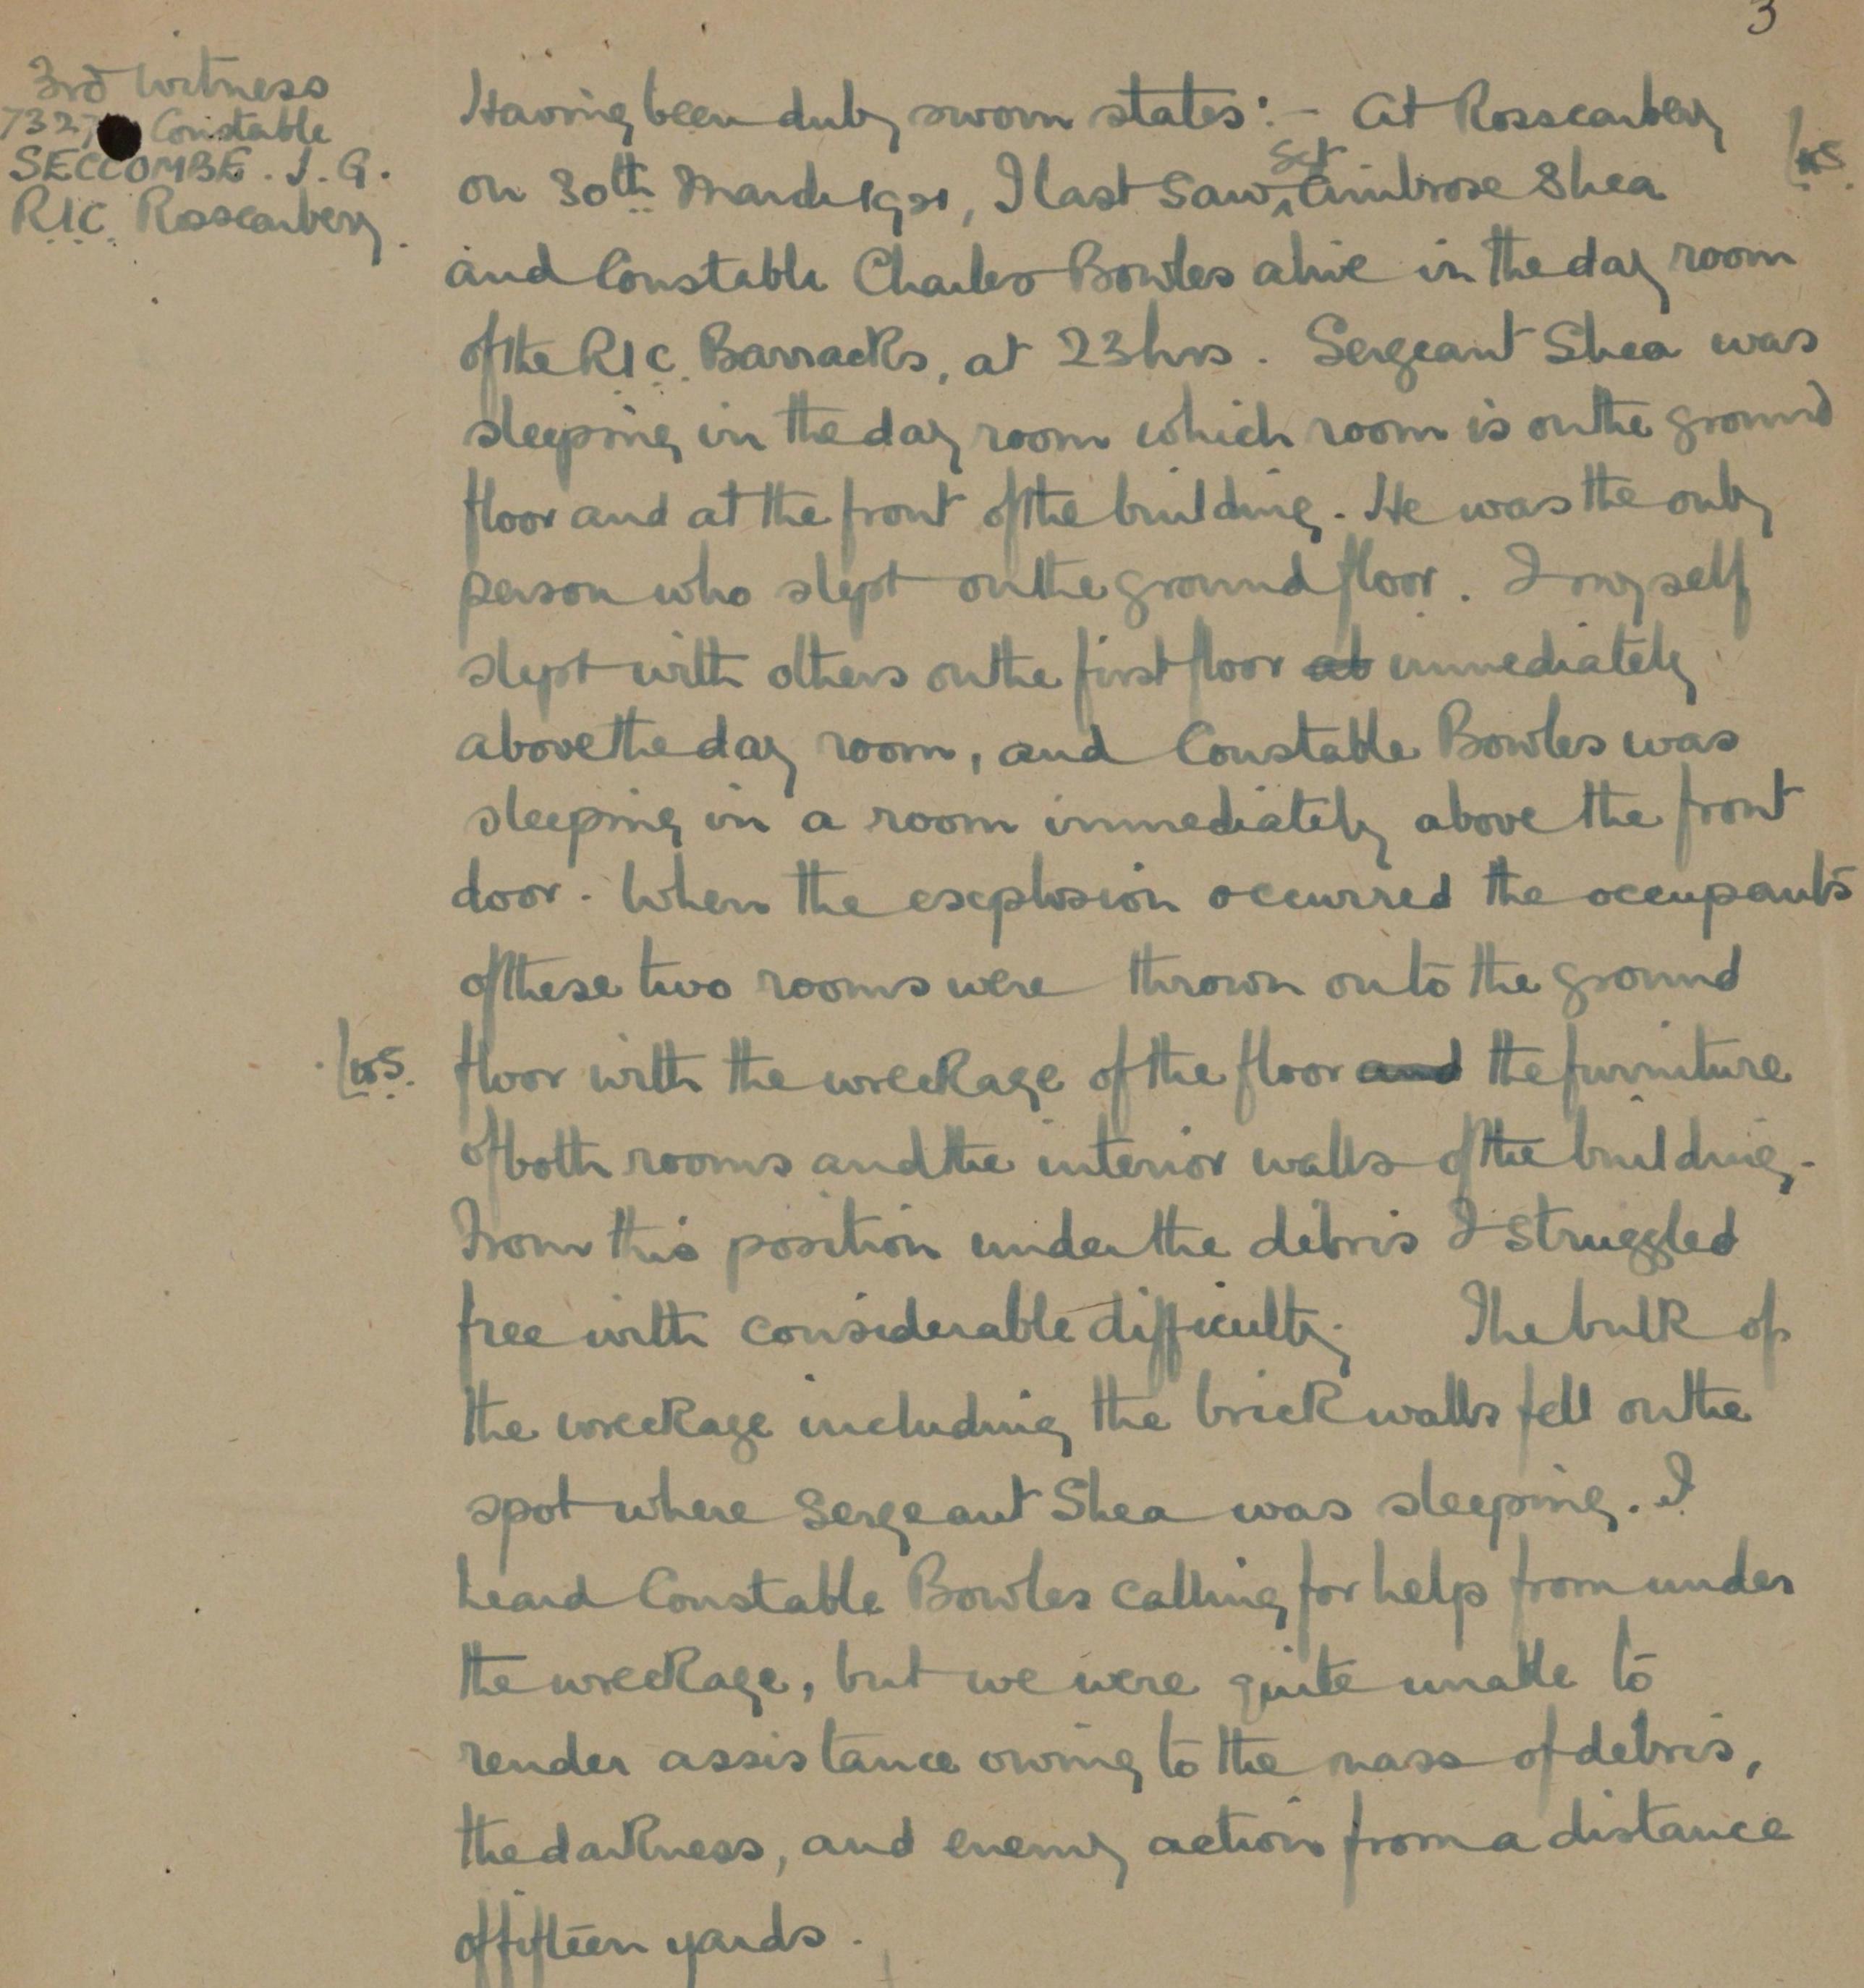 3
3rd Witness
7327 Constable
SECCOMBE. J. G.
R.I.C. Rosscarbery.
Having been duly sworn states:- At Rosscarbery
on 30th March 1921, I last saw Sgt Ambrose Shea
and Constable Charles Bowles alive in the day room
of the R.I.C. Barracks, at 23 hrs. Sergeant Shea was
sleeping in the day room which room is on the ground
floor and at the front of the building. He was the only
person who slept on the ground floor. I myself
slept with others on the first floor at immediately
above the day room, and Constable Bowles was
sleeping in a room immediately above the front
door. When the explosion occurred the occupants
of these two rooms were thrown on to the ground
floor with the wreckage of the floor and the furniture
of both rooms and the interior walls of the building.
From this position under the debris I struggled
free with considerable difficulty. The bulk of
the wreckage including the brick walls fell on the
spot where Sergeant Shea was sleeping. I
heard Constable Bowles calling for help from under
the wreckage, but we were quite unable to
render assistance owing to the mass of debris,
the darkness, and enemy action from a distance
of fifteen yards.